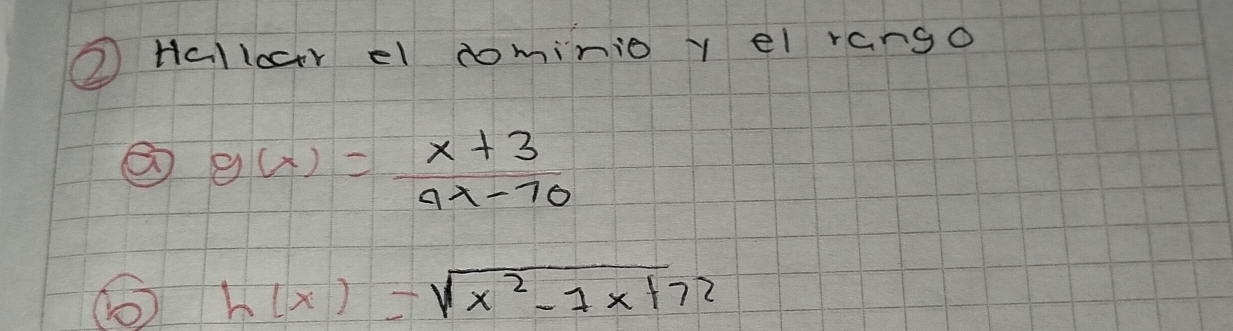 ② Hallar el dominio y el rango
ⓐ g(x) = x+3 / 9x-10
ⓑ h(x) = √x²-7x+12